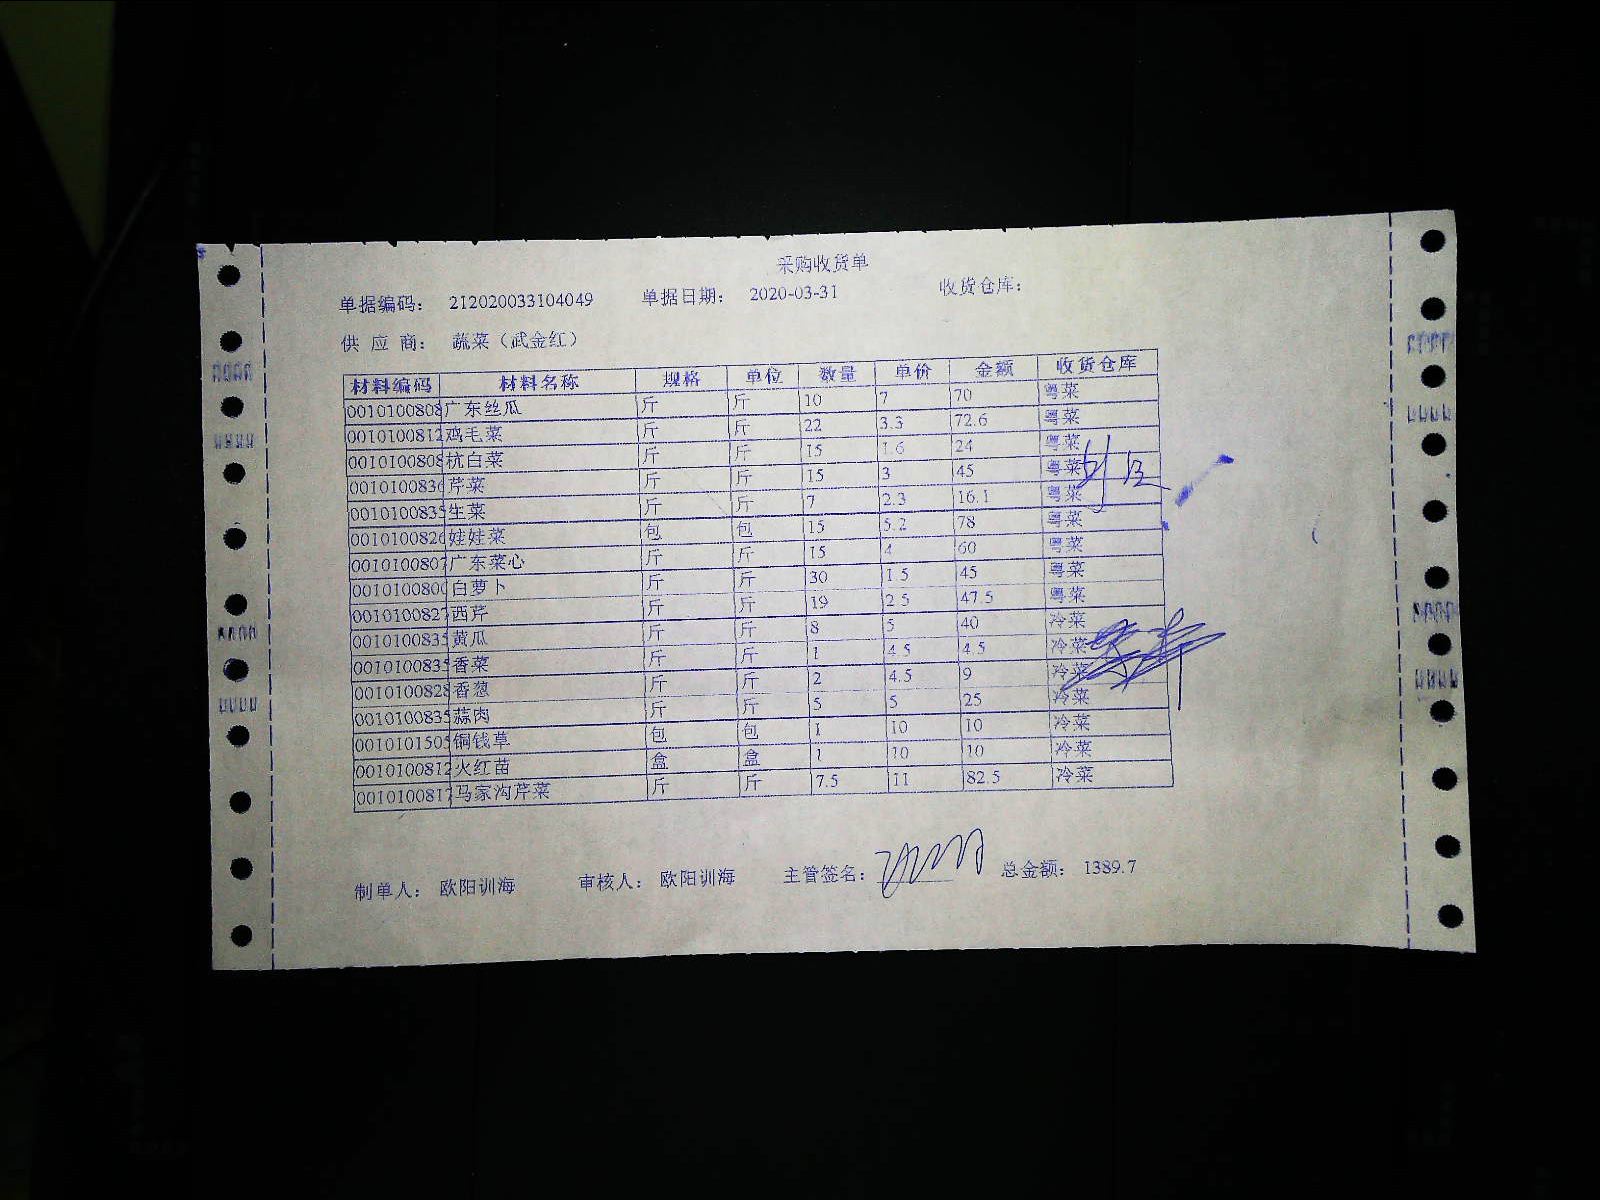 采购收货单
单据编码： 212020033104049 单据日期： 2020-03-31 收货仓库：
供 应 商： 蔬菜（武金红）
材料编码 材料名称 规格 单位 数量 单价 金额 收货仓库
0010100808 广东丝瓜 斤 斤 10 7 70 粤菜
0010100812 鸡毛菜 斤 斤 22 3.3 72.6 粤菜
0010100808 杭白菜 斤 斤 15 1.6 24 粤菜
001010083 芹菜 斤 斤 15 3 45 粤菜
0010100835 生菜 斤 斤 7 2.3 16.1 粤菜
001010082 娃娃菜 包 包 15 5.2 78 粤菜
001010080 广东菜心 斤 斤 15 4 60 粤菜
001010080 白萝卜 斤 斤 30 1.5 45 粤菜
001010082 西芹 斤 斤 19 2.5 47.5 粤菜
0010100835 黄瓜 斤 斤 8 5 40 冷菜
0010100835 香菜 斤 斤 1 4.5 4.5 冷菜
0010100828 香葱 斤 斤 2 4.5 9 冷菜
0010100835 蒜肉 斤 斤 5 5 25 冷菜
0010101505 铜钱草 包 包 1 10 10 冷菜
0010100812 火红苗 盒 盒 1 10 10 冷菜
0010100817 马家沟芹菜 斤 斤 7.5 11 82.5 冷菜
制单人： 欧阳训海 审核人： 欧阳训海 主管签名： 总金额： 1389.7